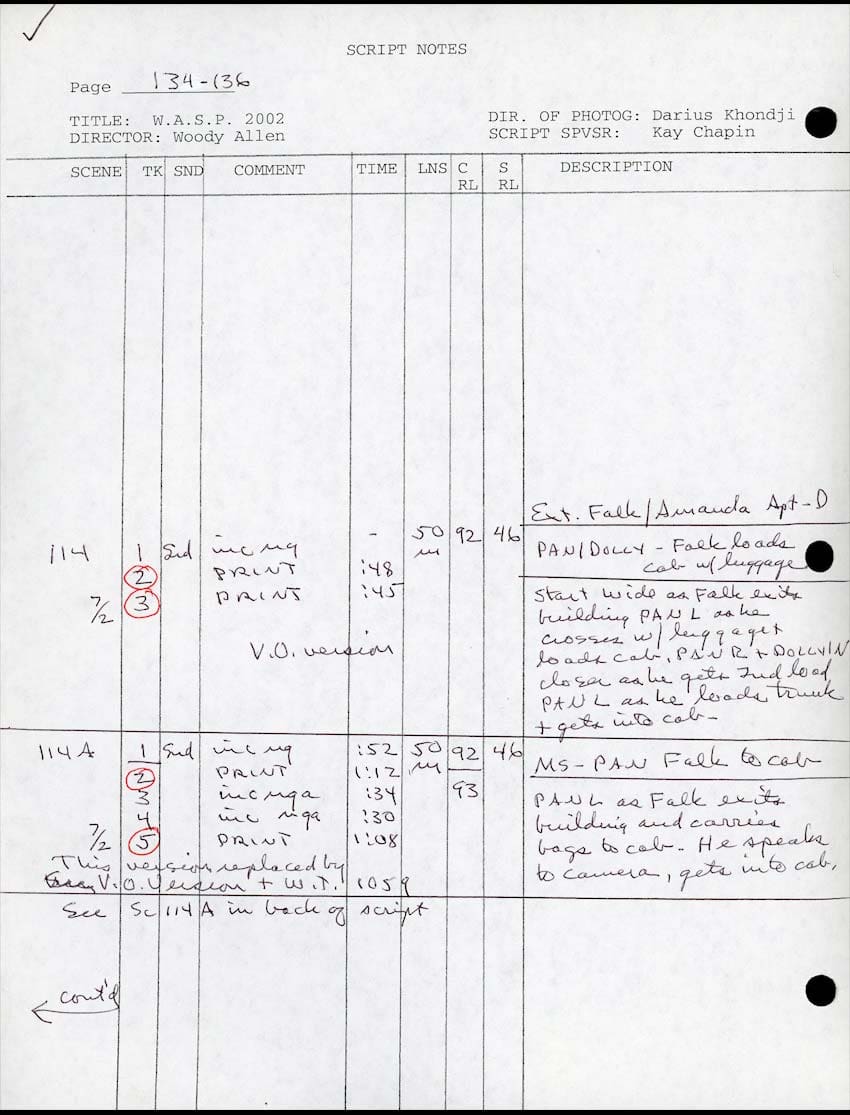 SCRIPT NOTES
Page 134-136
TITLE: W.A.S.P. 2002
DIR. OF PHOTOG: Darius Khondji
DIRECTOR: Woody Allen
SCRIPT SPVSR: Kay Chapin
SCENE TK SND COMMENT TIME LNS C RL S RL DESCRIPTION
Ext. Falk/Amanda Apt-D
114 1 Snd inc ng - 50 m 92 46
PAN/DOLLY - Falk loads
cab w/ luggage
2 PRINT :48
7/2 3 PRINT :45
V.O. version
Start wide as Falk exits
building PAN L as he
crosses w/ luggage +
loads cab, PAN R + DOLLY IN
closer as he gets 2nd load
PAN L as he loads trunk
+ gets into cab-
114A 1 Snd inc ng :52 50 m 92 46
MS-PAN Falk to cab
2 PRINT 1:12
3 inc nga :34 93
4 inc nga :30
7/2 5 PRINT 1:08
PAN L as Falk exits
building and carries
bags to cab. He speaks
to camera, gets into cab.
This version replaced by
V.O. Version + W.T. 1059
See Sc 114A in back of script
cont'd